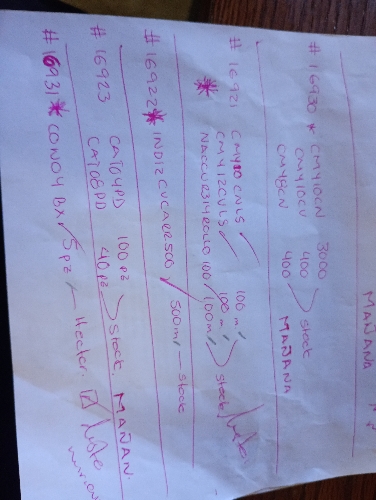 MAÑANA
#16930 * CMY10CN 3000
CMY10CV 400 > stock
CMY8CN 400 MAÑANA
#16921 CMY10CNLS ✓ 100 m
* CMY12CVLS ✓ 100 m > stock
100 / 100m
#16922 * INDI2CVCAR2500 ✓ 500m, — stock
#16923 CAT04PD 100 pz > stock. MAÑAN.
CAT08PD 40 pz
#16931 * CONO4BX ✓ 5 pz — Hector.